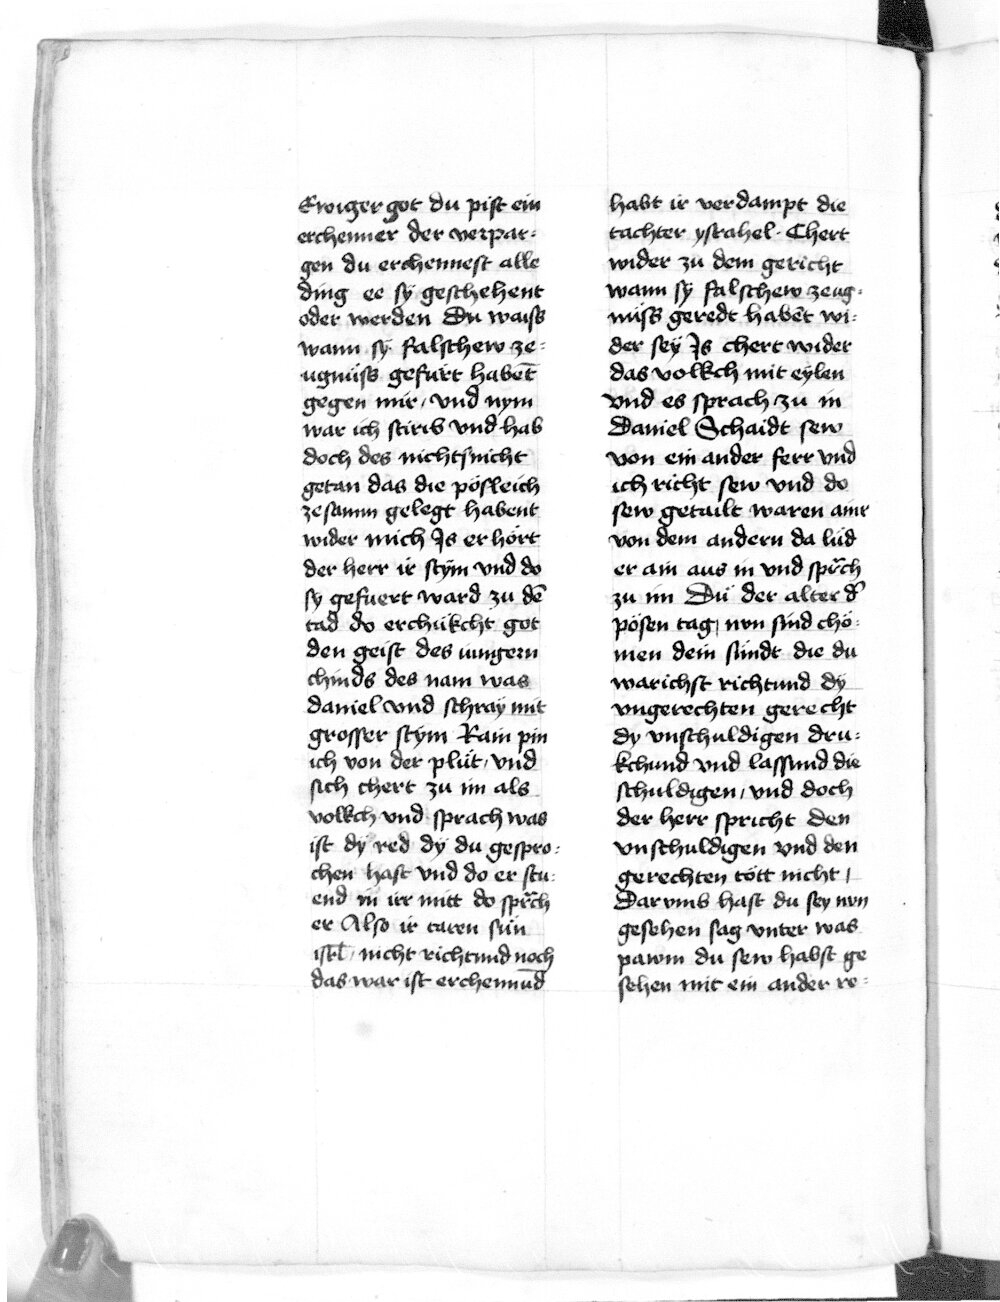 Ewiger got du pist ein
erchenner der verpar-
gen du erchennest alle
ding ee sÿ geschehent
oder werden Du waiss
wann sÿ falschew ze-
ugnüss gefürt habēt
gegen mir / vnd nym
war ich stirib vnd hab
doch des nichts nicht
getan das die pösleich
zesamm gelegt habent
wider mich Is erhört
der herr ir stÿm vnd do
sy gefuert ward zu dē
tad do erchükcht got
den geist des iungern
chinds des nam was
daniel vnd schraÿ mit
grosser stÿm Rain pin
ich von der plüt / vnd
sich chert zu im als
volkch vnd sprach was
ist dÿ red dÿ du gespro-
chen hast vnd do er stu-
end in irr mitt do spr̄ch
er Also ir taren sün
isrl̄ / nicht richtund noch
das war ist erchennūd
habt ir verdampt die
tachter ystrahel · Chert
wider zu dem gericht
wann sÿ falschew zeug-
nüss geredt habēt wi-
der seÿ Is chert wider
das volkch mit eÿlen
vnd es sprach zu in
Daniel Schaidt sew
von ein ander ferr vnd
ich richt sew vnd do
sew getailt waren ainr
von dem andern da lüd
er ain aus in vnd spr̄ch
zu im Dü der alter d'
pösen tag / nvn sind chö-
men dein sündt die du
warichst richtund dÿ
vngerechten gerecht
dy vnschuldigen dru-
kchund vnd lassund die
schuldigen / vnd doch
der herr spricht den
vnschuldigen vnd den
gerechten tött nicht /
Darvmb hast du sey nvn
gesehen sag vnter was
pawm du sew habst ge
sehen mit ein ander re-